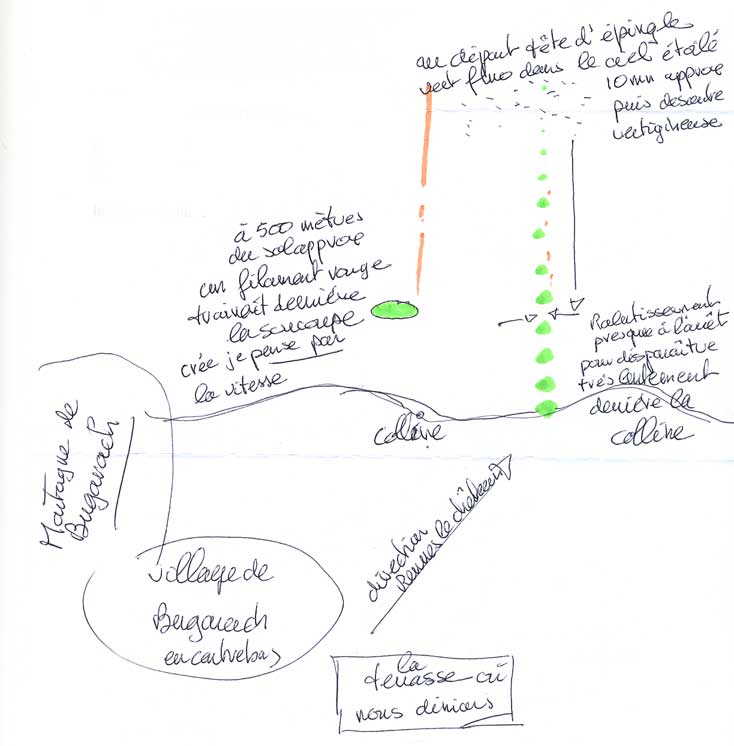 au départ tête d'épingle
vert fluo dans le ciel étoilé
10 mn approx
puis descente
vertigineuse
à 500 mètres
du sol approx
un filament rouge
trainait derrière
la soucoupe
crée je pense par
la vitesse
Ralentissement
presque à l'arrêt
pour disparaître
très lentement
derrière la
colline
colline
Montagne de
Bugarach
direction
Rennes le château
village de
Bugarach
en contrebas
la
terrasse où
nous dinions